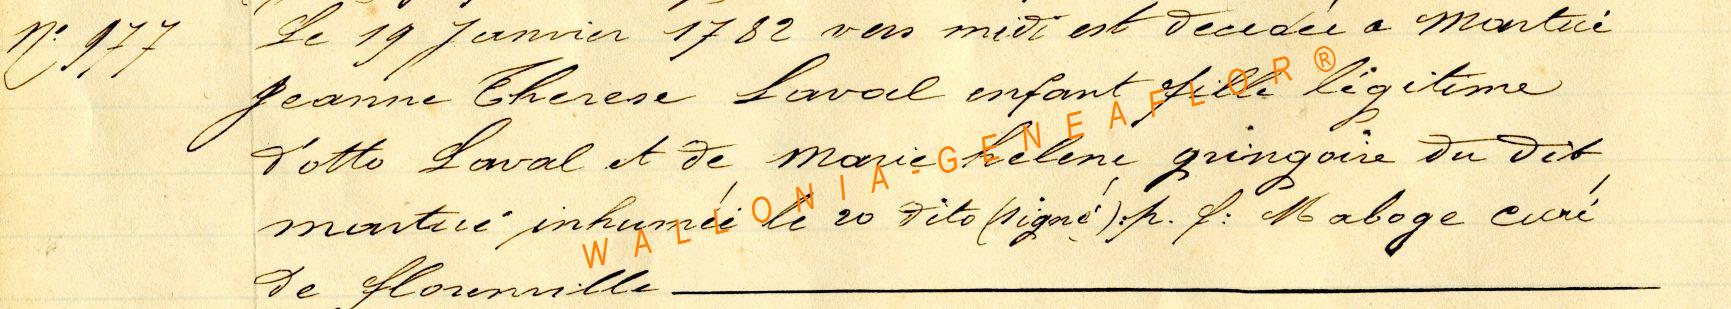 N° 977 Le 19 Janvier 1782 vers midi est decedée a Martué
Jeanne Therese Laval enfant fille légitime
d'otto Laval et de Marie helene gringoire du dit
martué inhumée le 20 dito (signé): p. f: Maboge curé
de florenville
WALLONIA-GENEAFLOR®